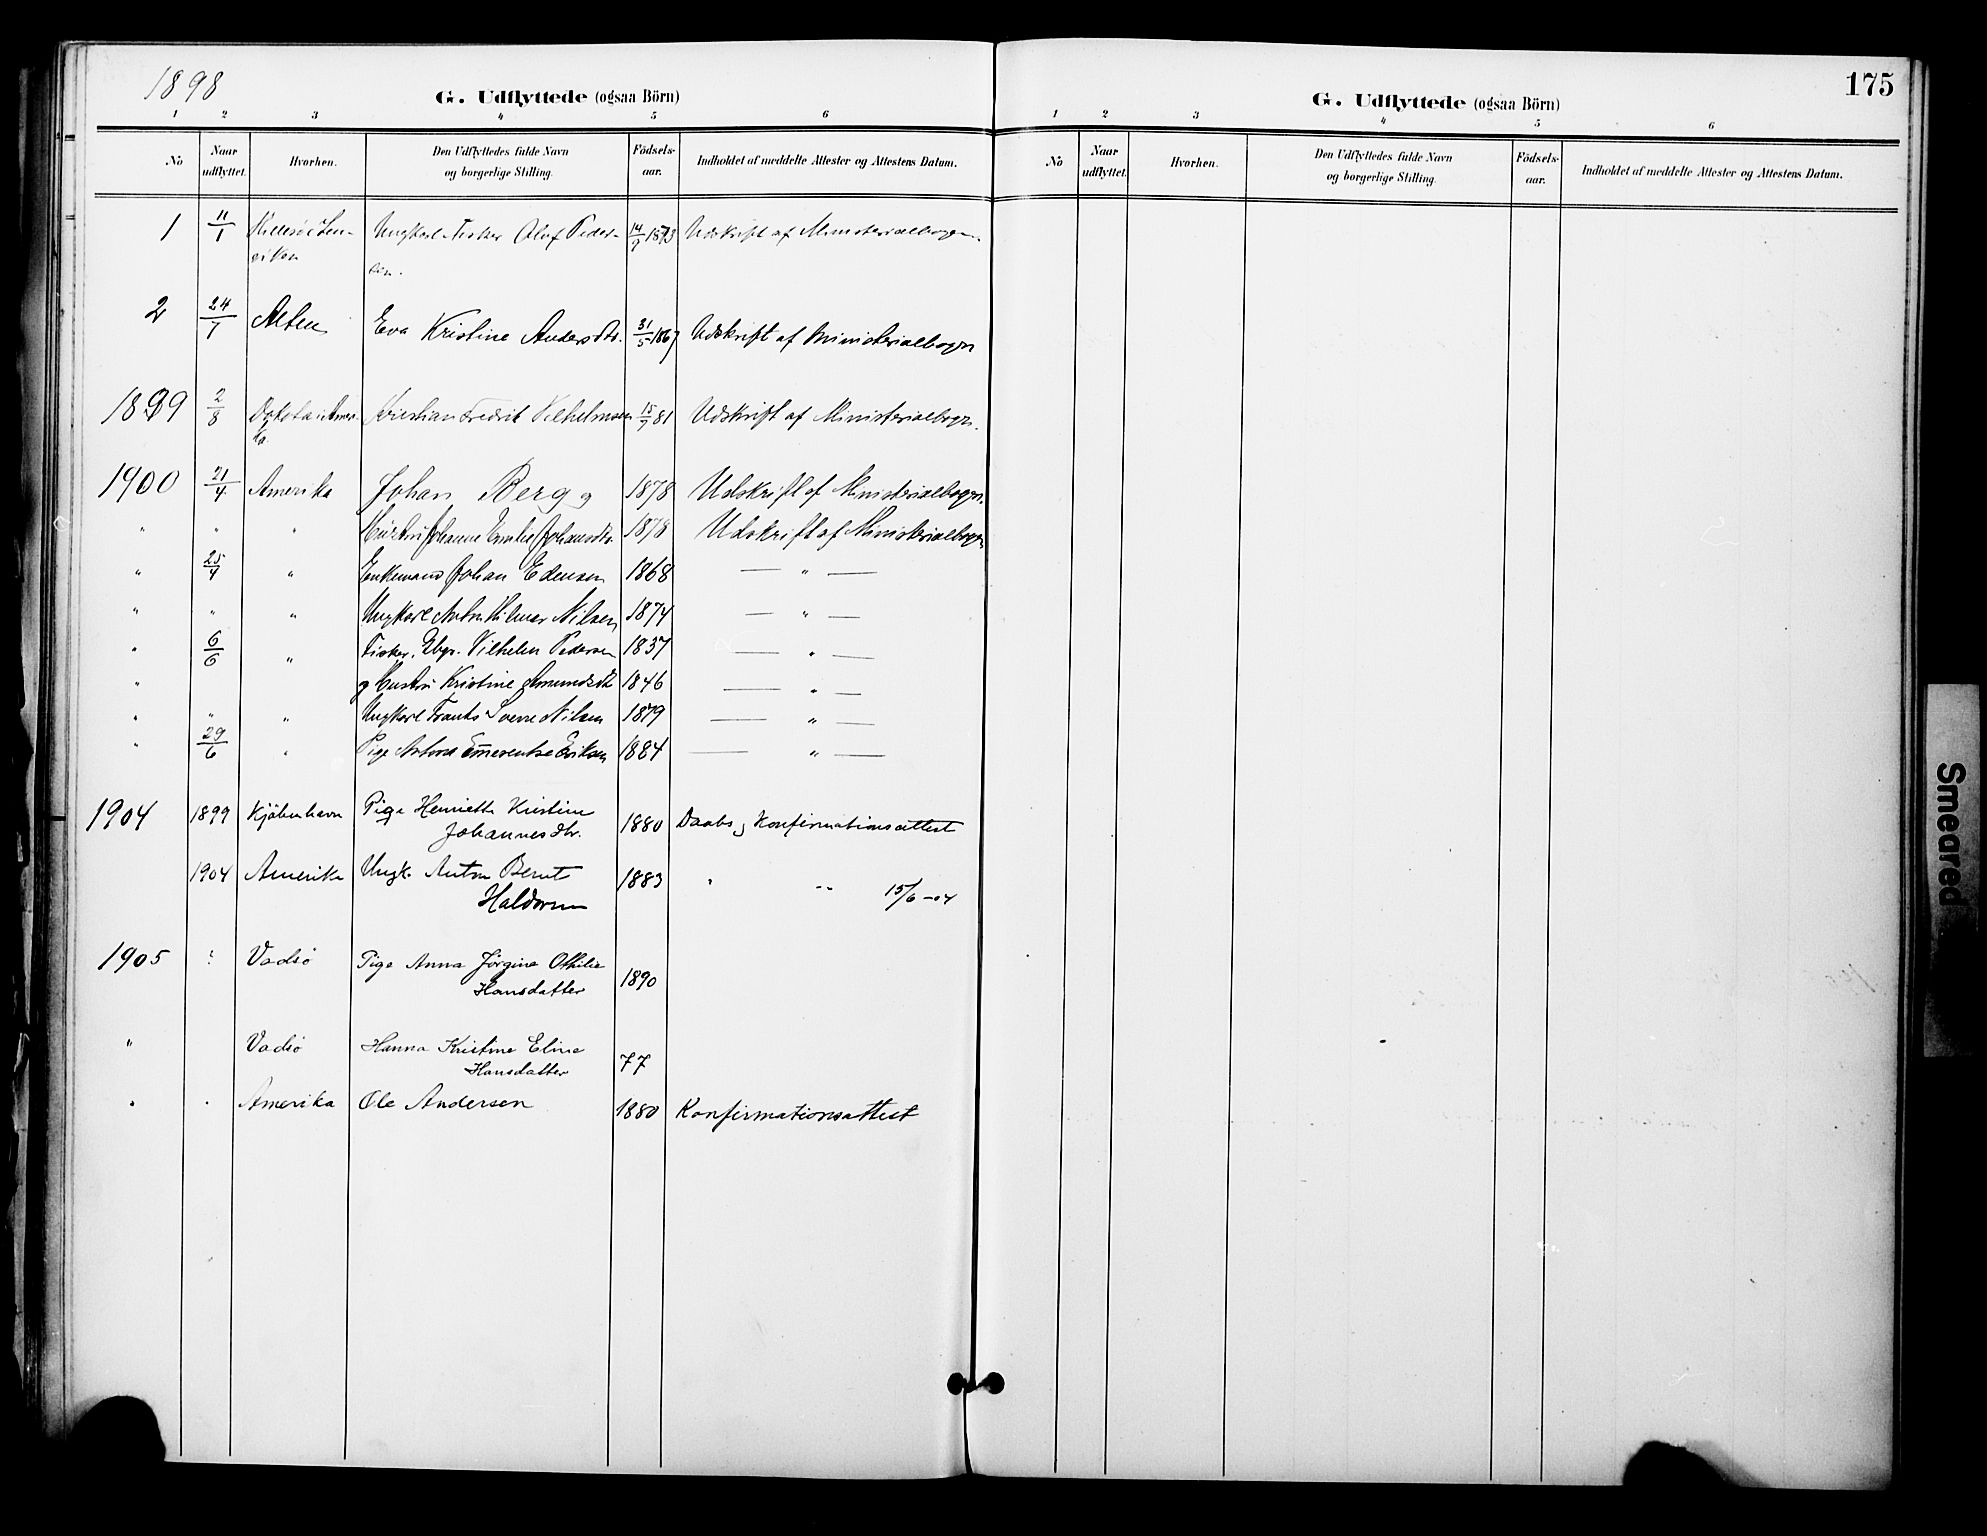 1898
G. Udflyttede (ogsaa Börn)
1 2 3 4 5 6
No Naar udflyttet. Hvorhen. Den Udflyttedes fulde Navn og borgerlige Stilling. Födsels-aar. Indholdet af meddelte Attester og Attestens Datum.
1 11/1 Ungkarl Fisker Olaf Peder- 14/9 1873 Udskrift af Ministerialbogen.
sen.
2 24/7 Alten Eva Kristine Andersdtr. 31/5 1867 Udskrift af Ministerialbogn
1899 2/8 Dakota i Amer- Kristian Fredrik Vilhelmsen 15/9 81 Udskrift af Ministerialbogn.
ka.
1900 21/4 Amerika Johan Berg og 1878 Udskrift af Ministerialbogn.
" " " Hustru Johanne Emilie Johansdtr. 1878 Udskrift af Ministerialbogn
" 25/4 " Enkemand Johan Edensen 1868 — " —
" " " Ungkarl Anton Hilmar Nilsen 1874 — " —
" 6/6 " Fisker, Vilhelm Pedersen 1837 — " —
" og Hustru Kristine Amundsdtr 1846 — " —
" " " Ungkarl Frants Sverre Nilsen 1879 — " —
" 29/6 " Pige Antona Emerentse Eriksen 1884 — " —
1904 1899 Kjöbenhavn Pige Henriette Kristine
Johannesdtr. 1880 Daabs og Konfirmationsattest
1904 Amerika Ungk. Anton Bernt 1883 " "
Haldorsen 15/6-04
1905 : Vadsö Pige Anna Jørgine Othilie
Hansdatter 1890
" Vadsö Hanna Kristine Eline
Hansdatter 77
" . Amerika Ole Andersen 1880 Konfirmationsattest
175
G. Udflyttede (ogsaa Börn)
1 2 3 4 5 6
No Naar udflyttet. Hvorhen. Den Udflyttedes fulde Navn og borgerlige Stilling. Födsels-aar. Indholdet af meddelte Attester og Attestens Datum.
Smeared